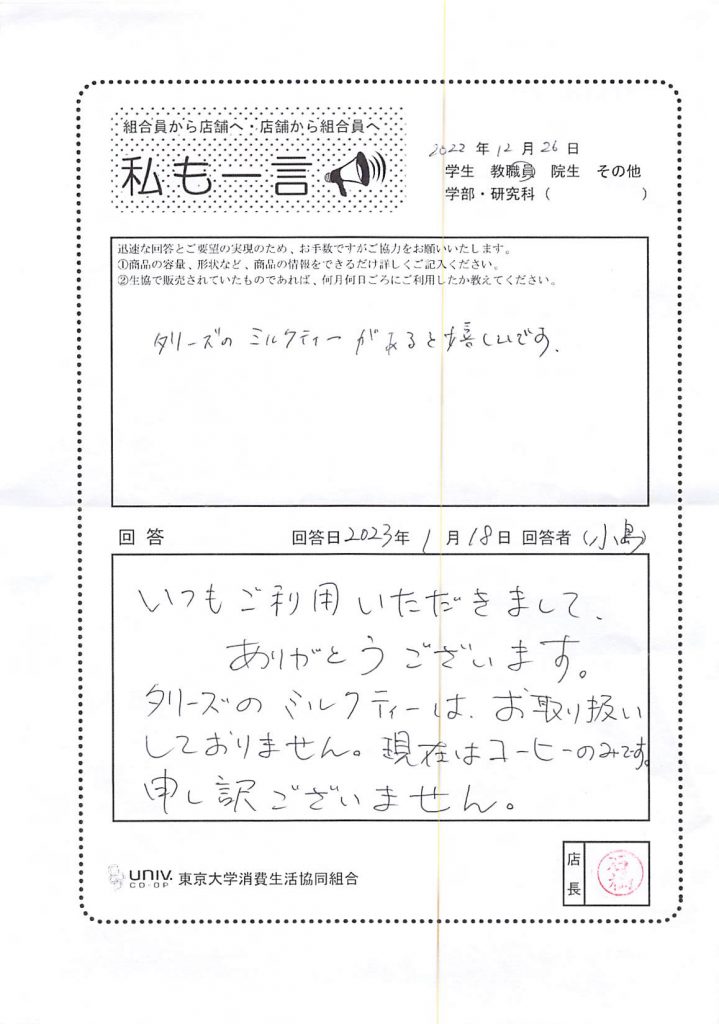 組合員から店舗へ・店舗から組合員へ
私も一言
2022年12月26日
学生 教職員 院生 その他
学部・研究科（ ）
迅速な回答とご要望の実現のため、お手数ですがご協力をお願いいたします。
①商品の容量、形状など、商品の情報をできるだけ詳しくご記入ください。
②生協で販売されていたものであれば、何月何日ごろにご利用したか教えてください。
タリーズの ミルクティーがあると嬉しいです.
回答 回答日2023年1月18日 回答者(小島)
いつもご利用いただきまして、
ありがとうございます。
タリーズの ミルクティーは、お取り扱い
しておりません。現在はコーヒーのみです。
申し訳ございません。
UNIV.
CO-OP
東京大学消費生活協同組合
店長